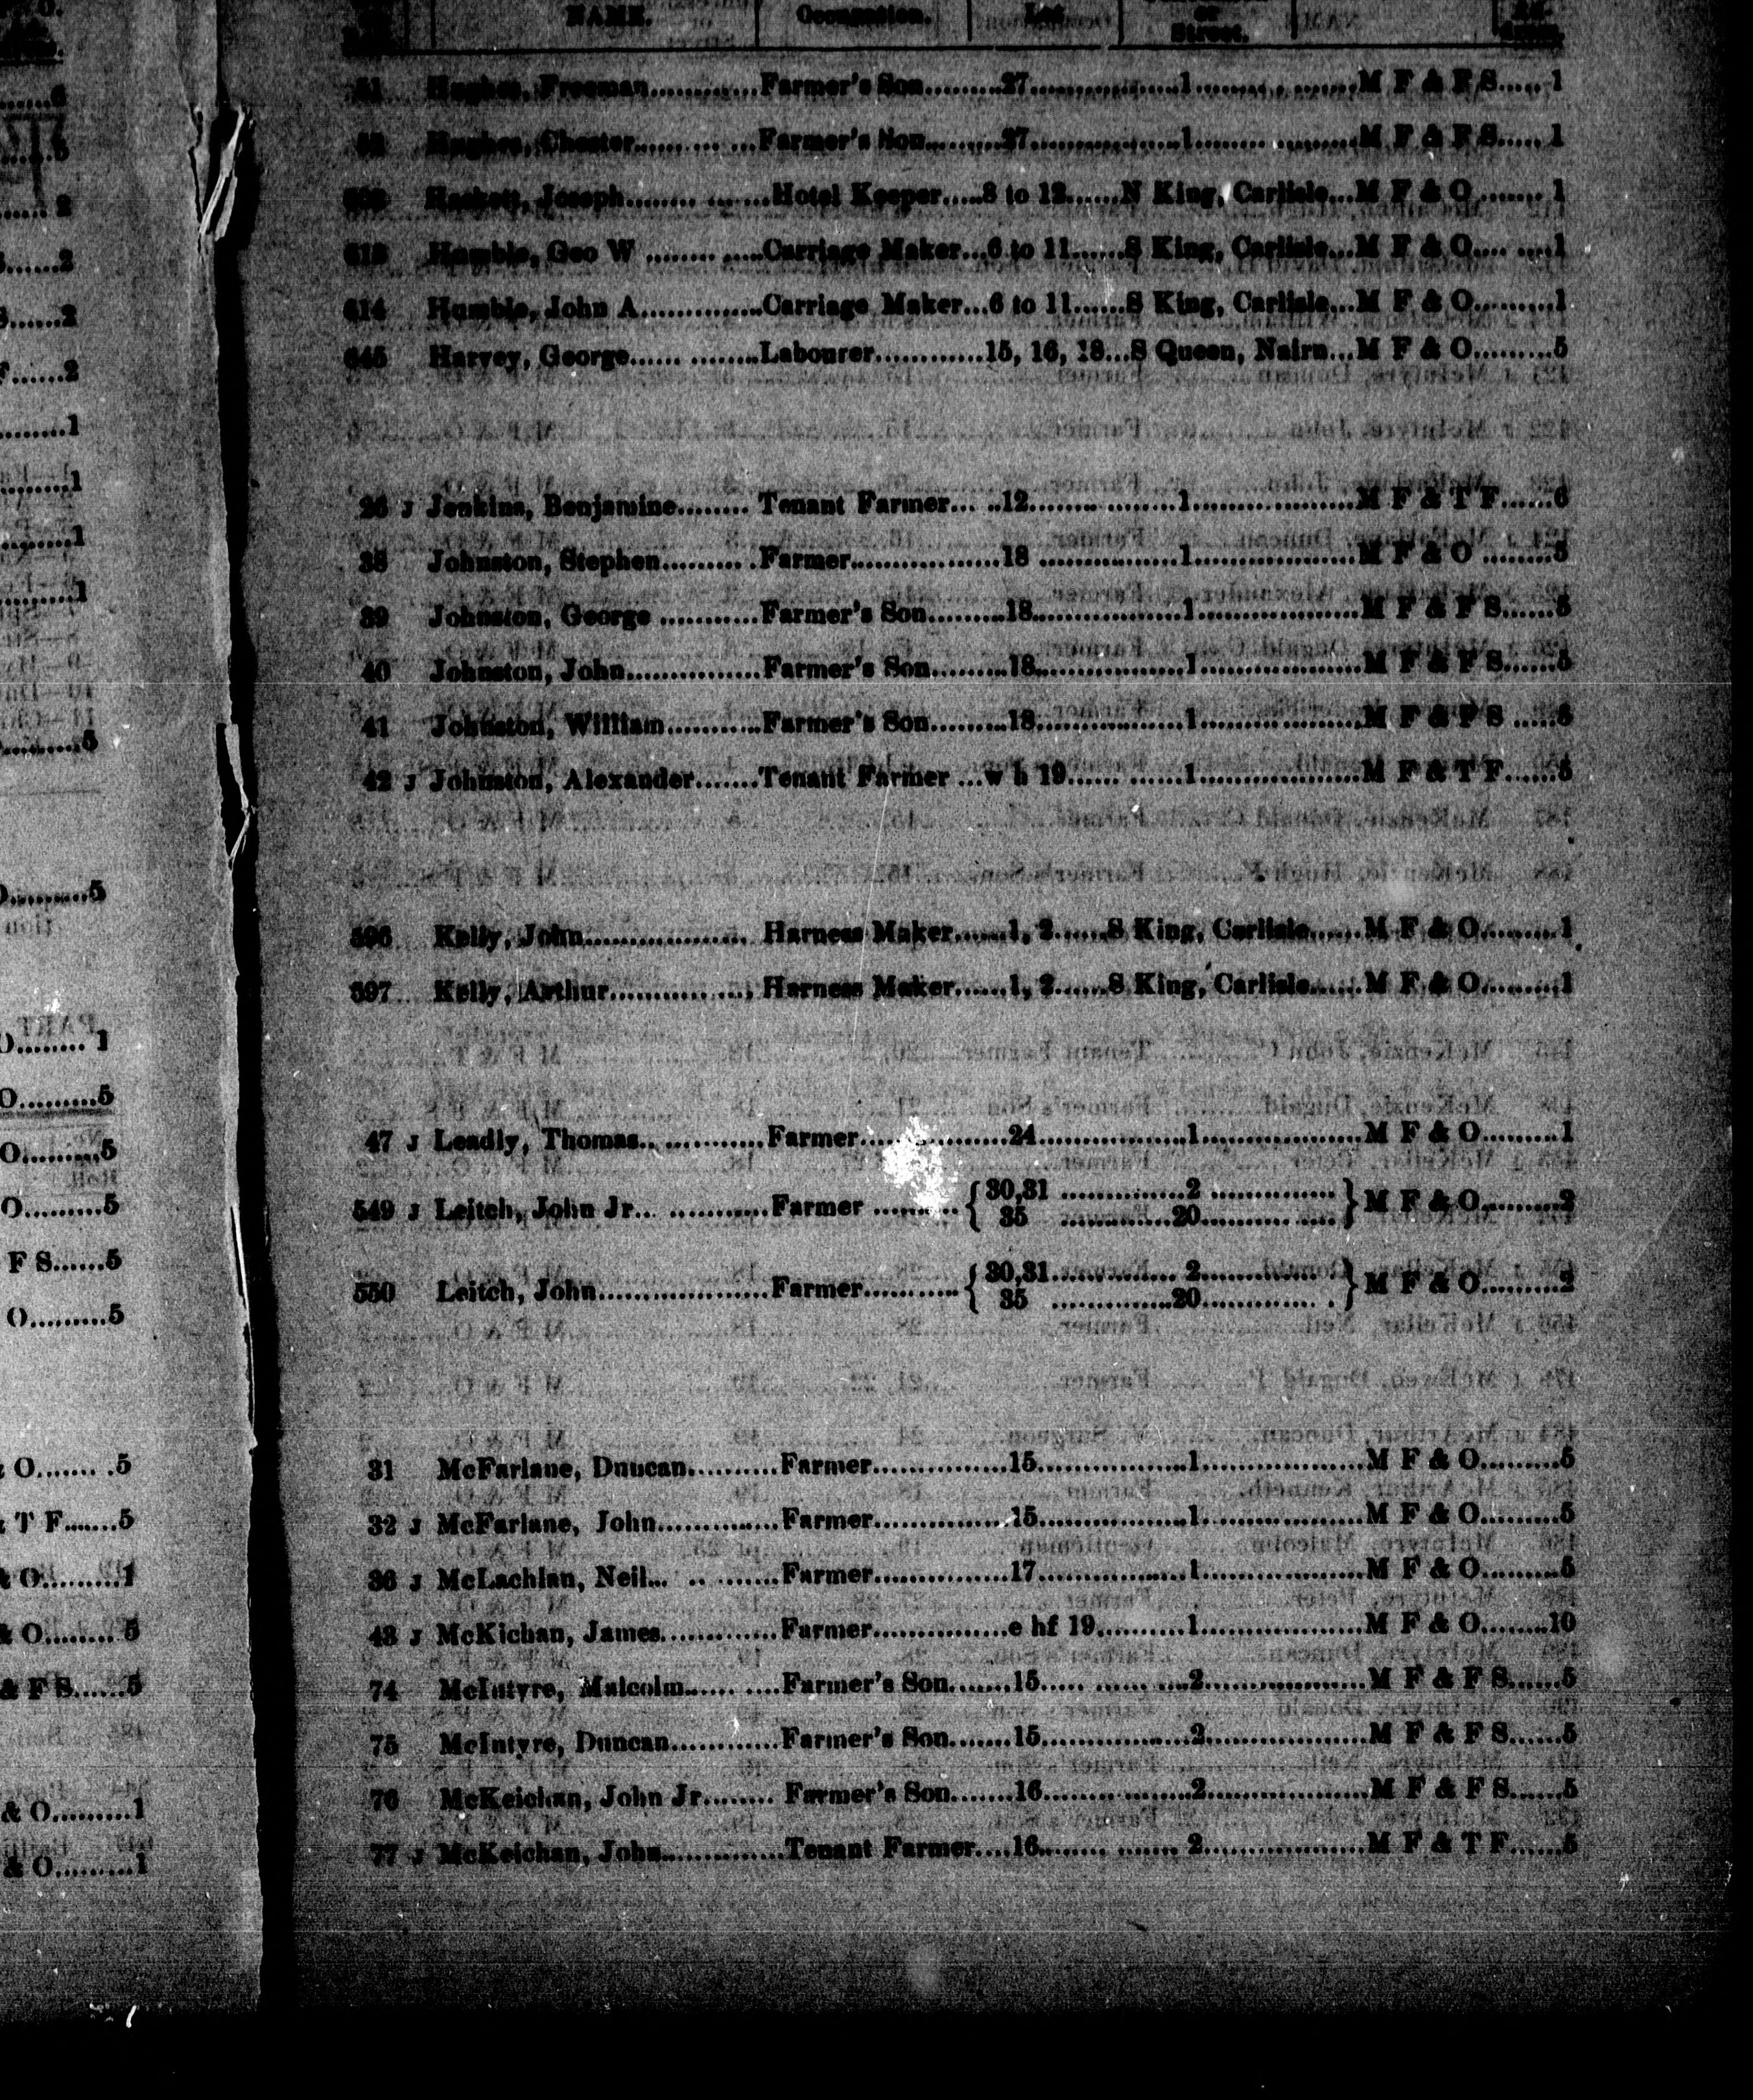 NAME. Occupation. Lot or Street.
51 Hughes, Freeman............Farmer's Son.........27..................1..................M F & F S.....1
52 Hughes, Chester............Farmer's Son.........27..................1..................M F & F S.....1
Hackett, Joseph............Hotel Keeper.....8 to 12......N King, Carlisle...M F & O.......1
613 Humble, Geo W ............Carriage Maker...6 to 11......S King, Carlisle...M F & O.........1
614 Humble, John A.............Carriage Maker...6 to 11......S King, Carlisle...M F & O.........1
645 Harvey, George...... ........Labourer............15, 16, 18...S Queen, Nairn...M F & O.........5
26 J Jenkins, Benjamine........ Tenant Farmer... ..12........ ........1..................M F & T F......6
38 Johnston, Stephen......... .Farmer.................18 ...............1..................M F & O ........5
39 Johnston, George ...........Farmer's Son.........18..................1..................M F & F S......5
40 Johnston, John...............Farmer's Son.........18..................1..................M F & F S......5
41 Johnston, William...........Farmer's Son.........18..................1..................M F & F S ......5
42 J Johnston, Alexander.......Tenant Farmer ...w h 19...... ......1..................M F & T F......5
596 Kelly, John.................. Harness Maker......1, 2......S King, Carlisle......M F & O.........1
597 Kelly, Arthur............ ..., Harness Maker......1, 2......S King, Carlisle......M F & O.........1
47 J Leadly, Thomas.. ...........Farmer...............24..................1..................M F & O.........1
549 J Leitch, John Jr... ...........Farmer .........{ 30,31 ...............2 ............... } M F & O.........2
35 ...............20.......... ....
550 Leitch, John...................Farmer...........{ 30,31............... 2............... } M F & O.........2
35 ...............20............. .
31 McFarlane, Dnucan..........Farmer...............15..................1..................M F & O.........5
32 J McFarlane, John.............Farmer...............15..................1..................M F & O.........5
36 J McLachlan, Neil... .. .......Farmer...............17..................1..................M F & O.........5
43 J McKichan, James.............Farmer...............e hf 19..........1..................M F & O........10
74 McIntyre, Malcolm...... ....Farmer's Son.......15..... ...... ....2..................M F & F S......5
75 McIntyre, Duncan............Farmer's Son.......15..................2..................M F & F S......5
76 McKeichan, John Jr........ Farmer's Son.......16........ ........2..................M F & F S......5
77 J McKeichan, John.............Tenant Farmer....16........ ....... 2..................M F & T F......5